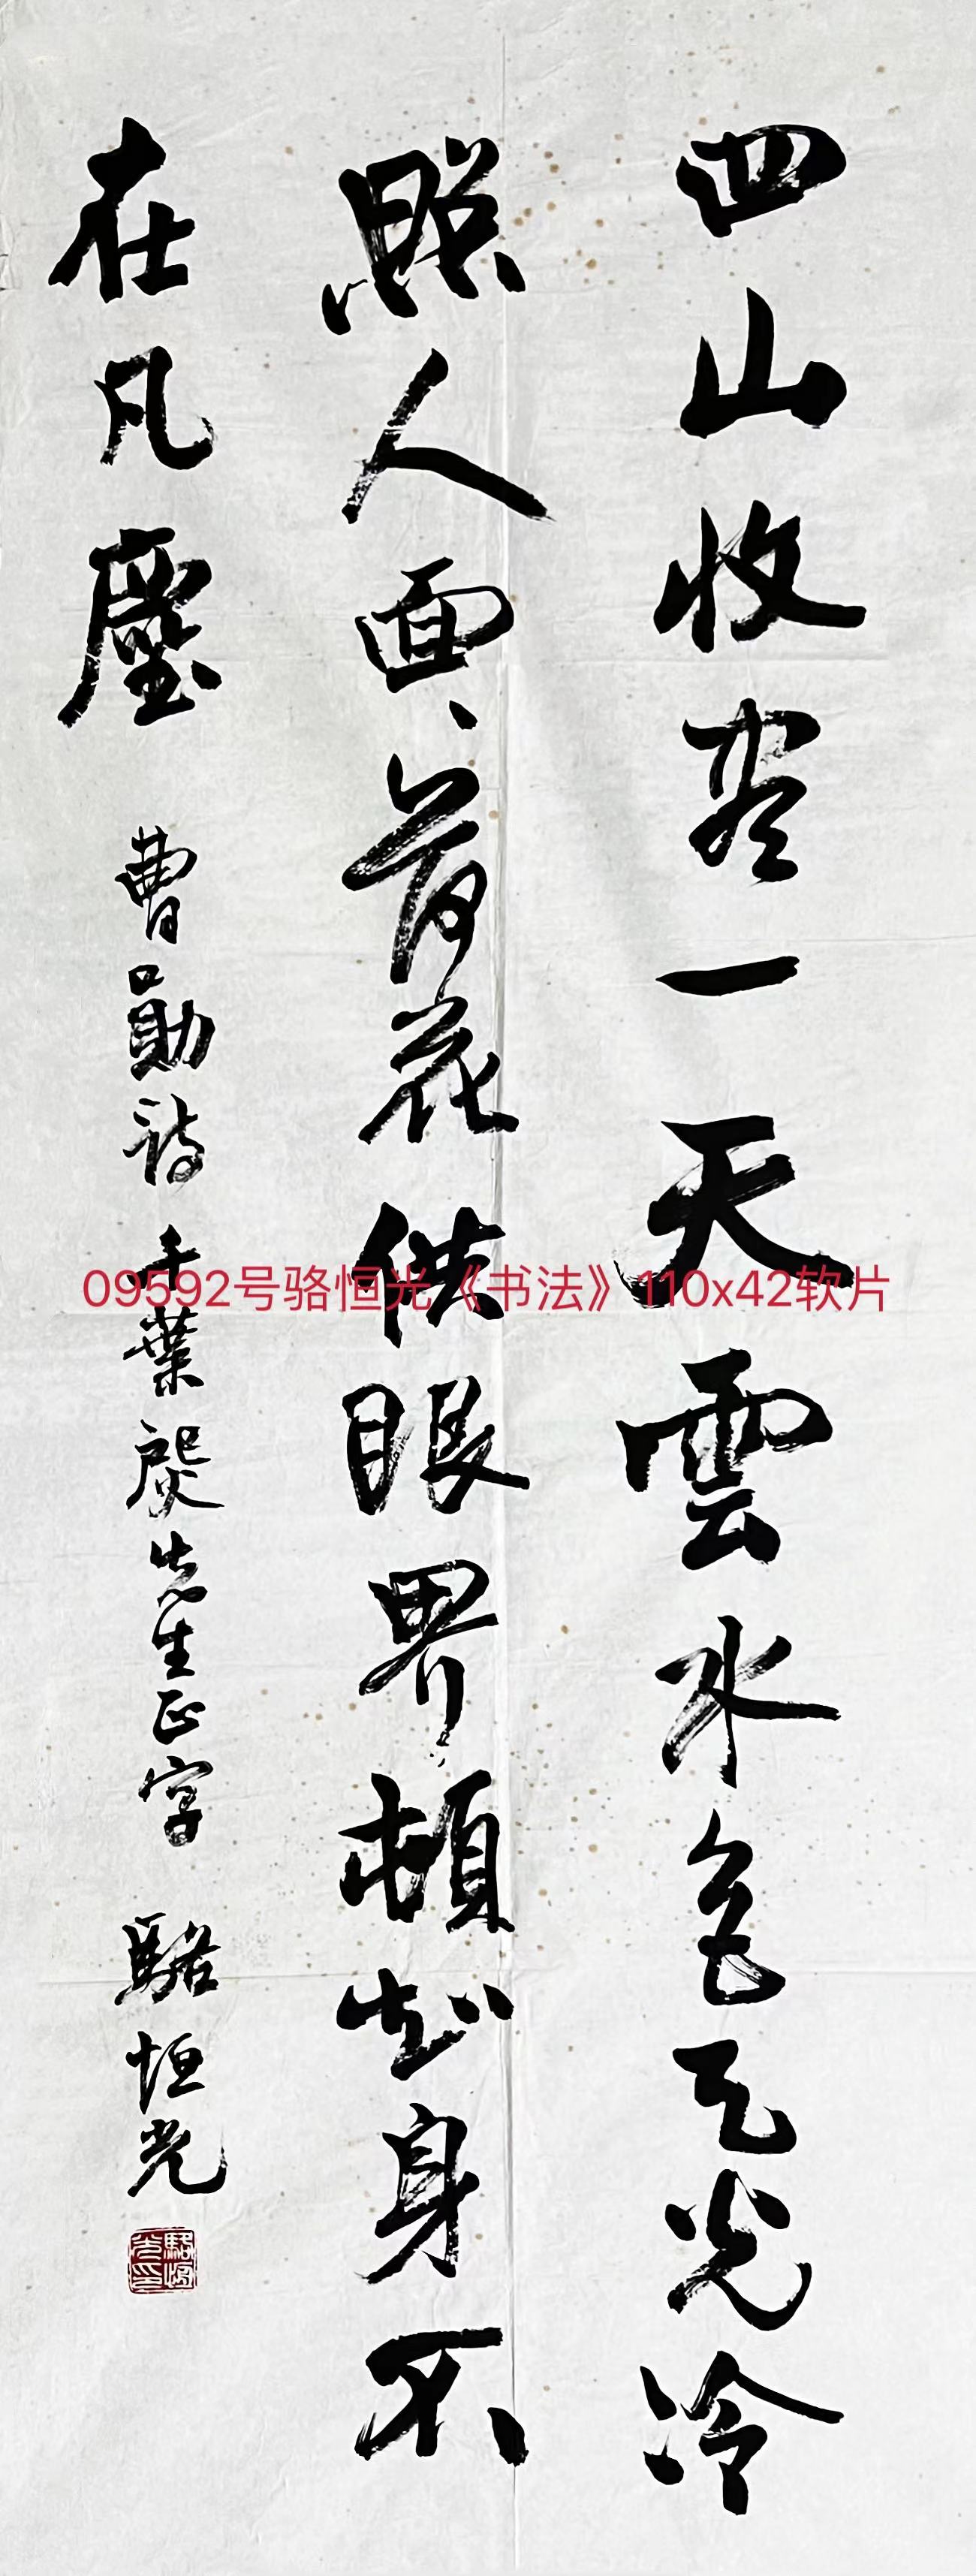 四山收盡一天雲水色天光冷
照人面、荷花供眼界頓知身不
在凡塵
曹勛詩 千葉先生正字 駱恒光
駱恒光印
09592号骆恒光《书法》110x42软片